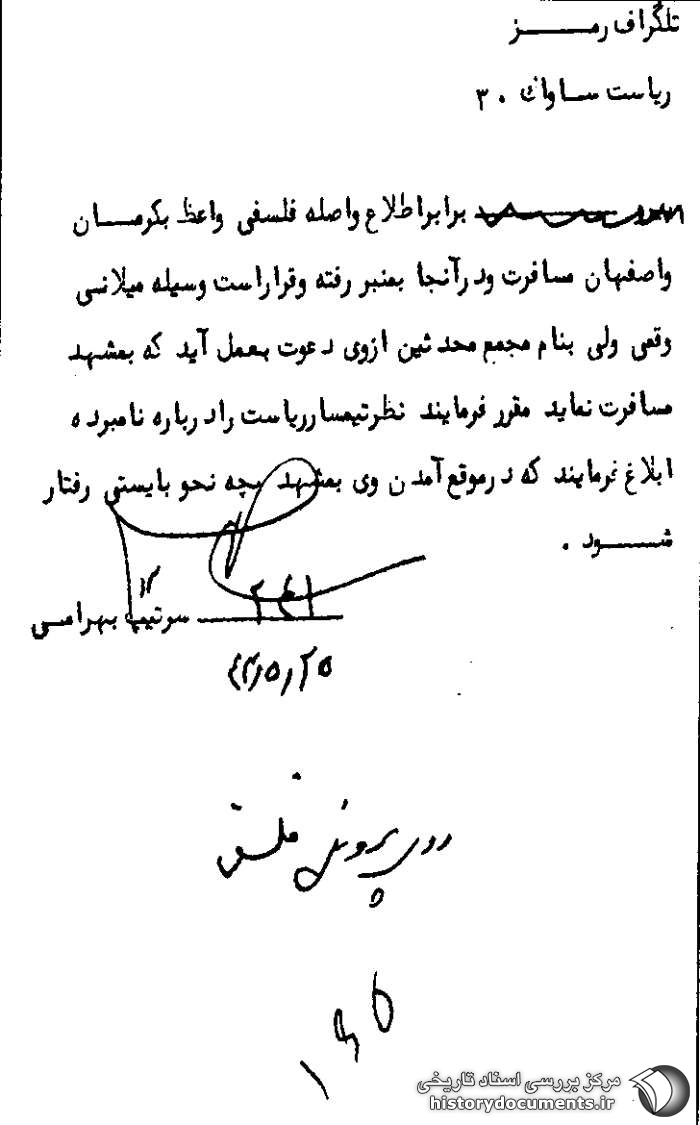 تلگراف رمـــــز
ریاست ســاواك ۳۰
برابراطلاع واصله فلسفی واعظ بکرمـــان
واصفهان مسافرت ودرآنجا بمنبر رفته وقراراست وسیله میلانـی
وقمی ولی بنام مجمع محدثین ازوی دعوت بعمل آید که بمشهد
مسافرت نماید مقرر فرمایند نظرتیمسارریاست رادرباره نامبرده
ابلاغ فرمایند که درموقع آمدن وی بمشهد بچه نحو بایستی رفتار
شـــود .
سرتیپ بهرامـی
۲۵ ر ۵ ر ۴۳
روی پرونده فلسفی
مرکز بررسی اسناد تاریخی
historydocuments.ir